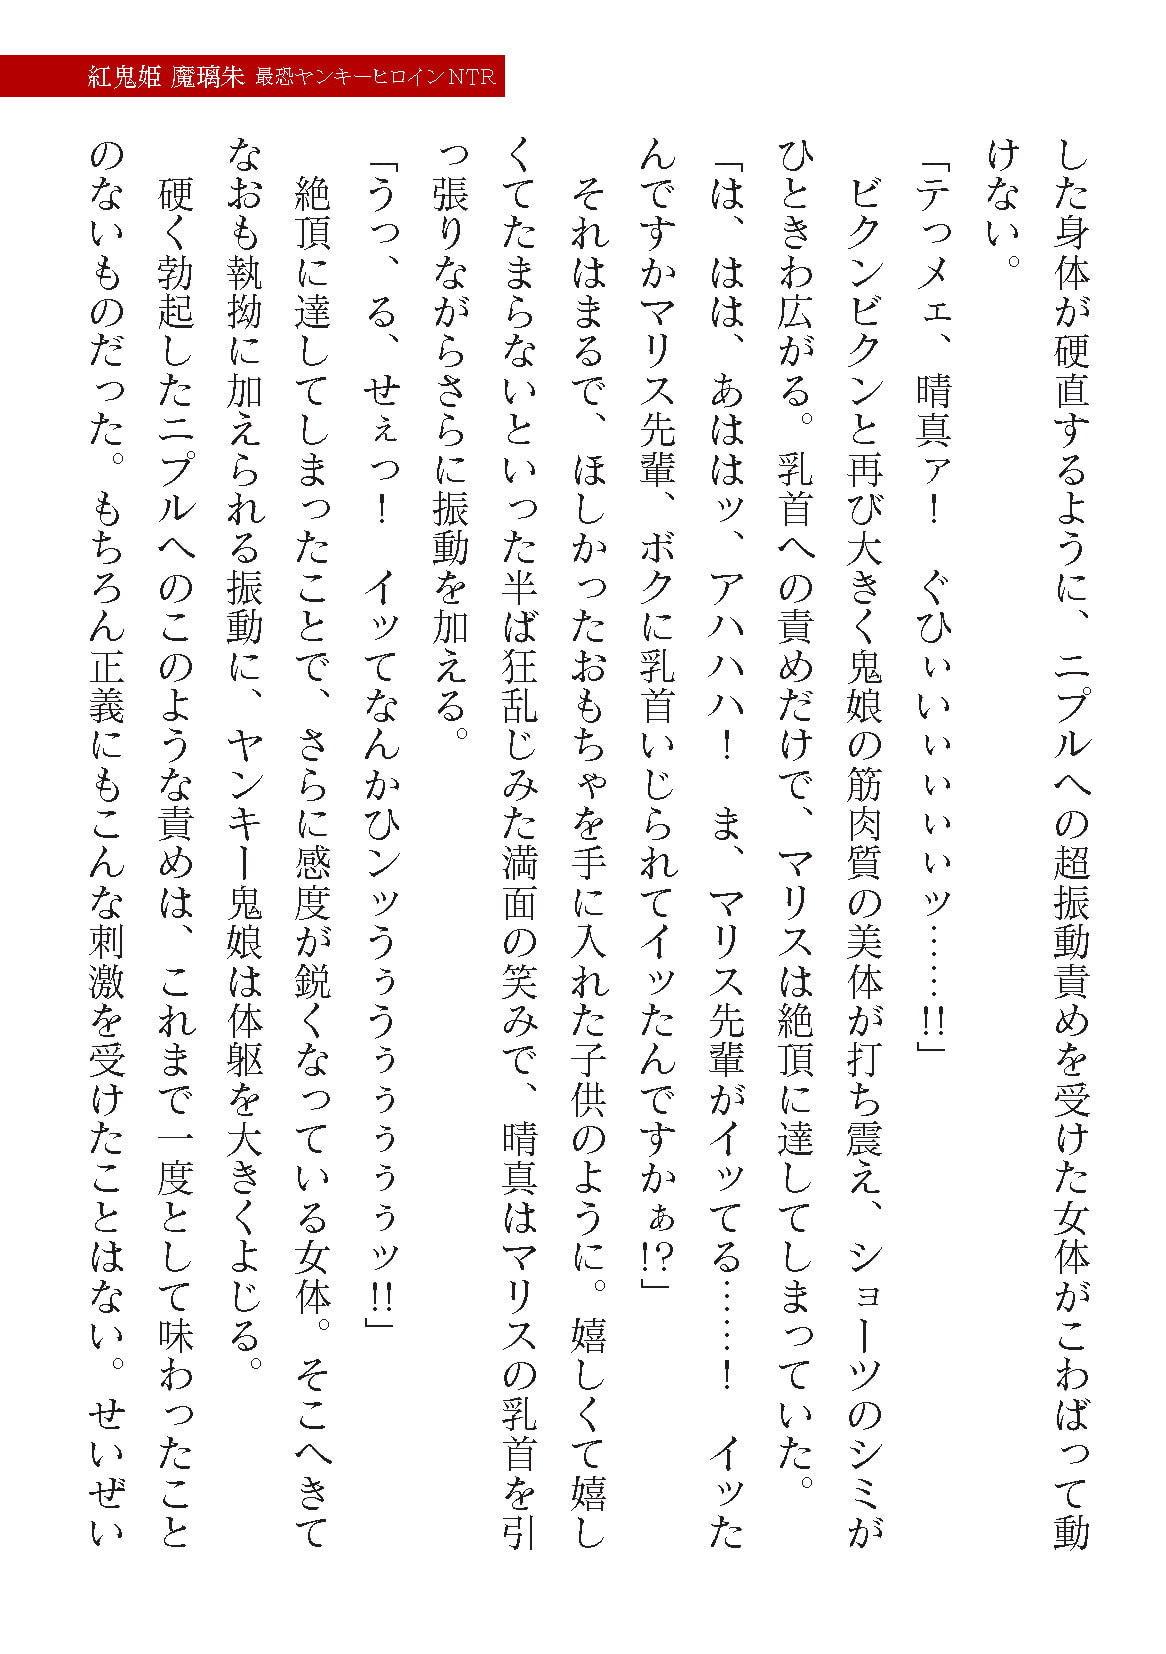 紅鬼姫 魔璃朱 最恐ヤンキーヒロインNTR
した身体が硬直するように、ニプルへの超振動責めを受けた女体がこわばって動
けない。
「テっメェ、晴真ァ！　ぐひぃいぃぃぃぃッ……!!」
　ビクンビクンと再び大きく鬼娘の筋肉質の美体が打ち震え、ショーツのシミが
ひときわ広がる。乳首への責めだけで、マリスは絶頂に達してしまっていた。
「は、はは、あははッ、アハハハ！　ま、マリス先輩がイッてる……！　イッた
んですかマリス先輩、ボクに乳首いじられてイッたんですかぁ!?」
　それはまるで、ほしかったおもちゃを手に入れた子供のように。嬉しくて嬉し
くてたまらないといった半ば狂乱じみた満面の笑みで、晴真はマリスの乳首を引
っ張りながらさらに振動を加える。
「うっ、る、せぇっ！　イッてなんかひンッうぅうぅぅぅぅぅッ!!」
　絶頂に達してしまったことで、さらに感度が鋭くなっている女体。そこへきて
なおも執拗に加えられる振動に、ヤンキー鬼娘は体躯を大きくよじる。
　硬く勃起したニプルへのこのような責めは、これまで一度として味わったこと
のないものだった。もちろん正義にもこんな刺激を受けたことはない。せいぜい